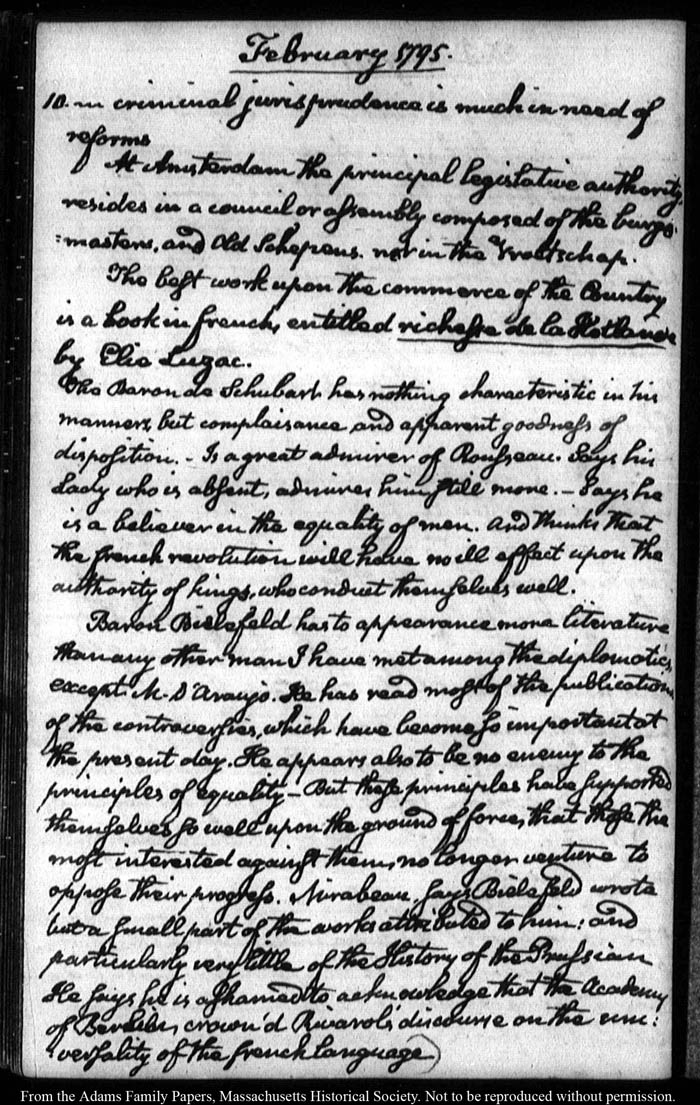 February 1795.
10. in criminal jurisprudence is much in need of
reforms
At Amsterdam the principal legislative authority,
resides in a council or assembly composed of the burgo
:masters, and Old Schepens. not in the Vroetschap.
The best work upon the commerce of the Country
is a book in french, entitled richesse de la Hollande
by Elie Luzac.
The Baron de Schubart has nothing characteristic in his
manners, but complaisance and apparent goodness of
disposition. - Is a great admirer of Rousseau. Says his
Lady who is absent, admires him still more. - Says he
is a believer in the equality of men. And thinks that
the french revolution will have no ill effect upon the
authority of kings, who conduct themselves well.
Baron Bielefeld has to appearance more literature
than any other man I have met among the diplomatics,
except M. D'Araujo. He has read most of the publications
of the controversies, which have become so important at
the present day. He appears also to be no enemy to the
principles of equality - But these principles have supported
themselves so well upon the ground of force, that those the
most interested against them, no longer venture to
oppose their progress. Mirabeau, says Bielefeld wrote
but a small part of the works attributed to him: and
particularly very little of the History of the Prussian
He says he is ashamed to acknowledge that the Academy
of Berlin, crown'd Rivarol's discourse on the uni:
:versality of the french language)
From the Adams Family Papers, Massachusetts Historical Society. Not to be reproduced without permission.